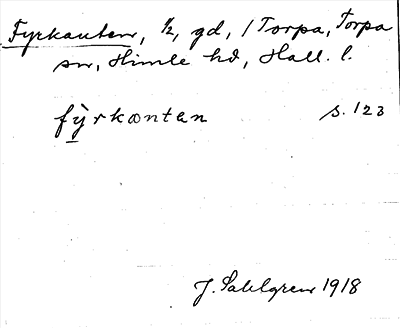 Fyrkanten, 1/2, gd, / Torpa, Torpa
sn, Himle hd, Hall. l.
fỳ̱rkæntan s. 123
J. Sahlgren 1918